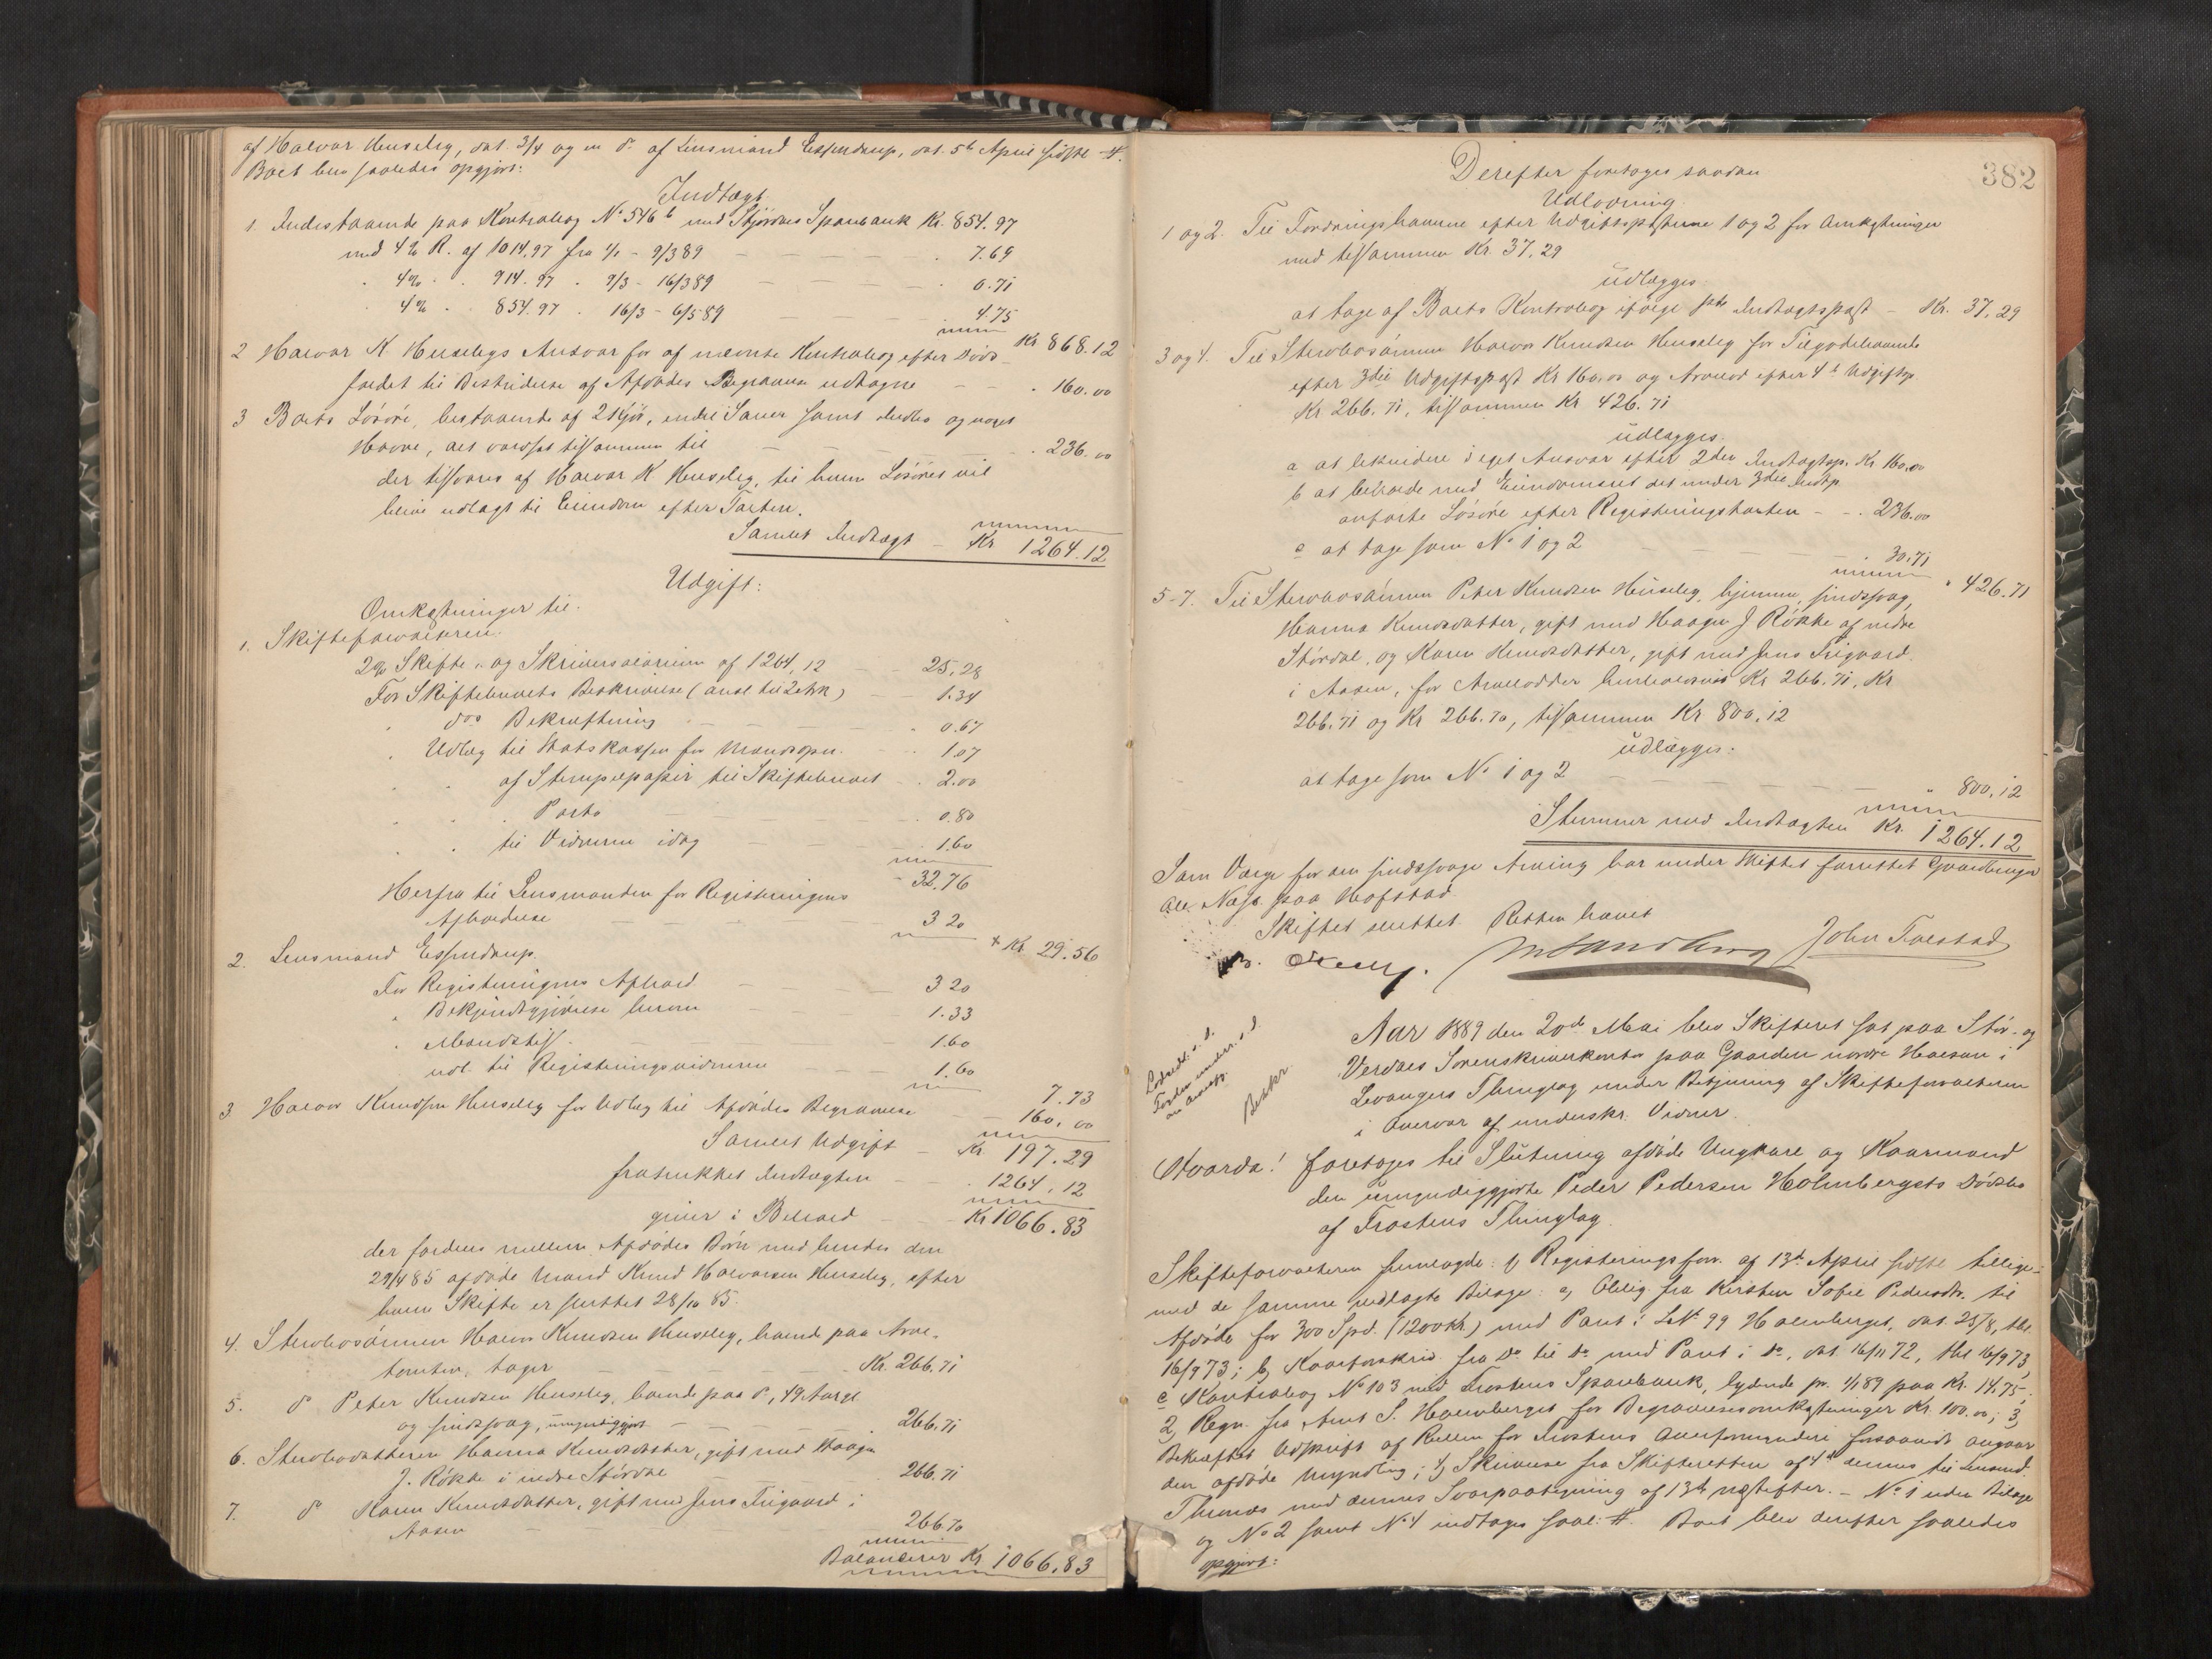 af Halvor Huseby, dat. 3/4 og en do af Lensmand Essendrup, dat. 5te April sidstl. #.
Boet blev saaledes opgjort:
Indtægt
1. Indestaaende paa Kontrabog No 546 b med Stjørdens Sparebank Kr. 854.97
med 4% R. af 1014.97 fra 1/1 - 9/3 89 - - - 7.69
" 4% " 914.97 " 9/3 - 16/3 89 - - - 0.71
4% " 854.97 " 16/3 - 6/5 89 - - - 4.75
Kr 868.12
2 Halvor K. Husebys Ansvar for af nævnte Kontrabog efter Døds-
faldet til Bestridelse af Afdødes Begravelse udtagne - - 160.00
3 Boets Løsøre, bestaaende af 2 Kjør, endel Sauer samt andet og noget
Havre, alt vurdert tilsammen til - - 236.00
der tilsvares af Halvor K Huseby, til hvem Løsøret vil
blive udlagt til Eiendom efter Taxten.
Samlet Indtægt - Kr 1264.12
Udgift:
Omkostninger til:
1. Skifteforvalteren:
2% Skifte- og Skriversalarium af 1264,12 - 25,28
For Skiftebrevets Beskrivelse (ansl. til 2 ark) - 1.34
" dos Bekræftning - - 0.67
" Udlæg til Statskassen for Mandsopn. - 1.07
" " af Stempelpapir til Skiftebrevet - 2.00
" " Porto - - 0.80
" " til Vidnerne idag - - 1.60
32.76
Herfra til Lensmanden for Registreringens
Afholdelse - - 3 20
+ Kr 29.56
2. Lensmand Essendrup.
For Registreringens Afhold - - 3 20
" Bekjendtgjørelse herom - 1.33
" Mandstils. - - 1.60
udl. til Registreringsvidnerne - 1.60
7.73
3 Halvor Knudsen Huseby for Udlæg til Afdødes Begravelse - 160.00
Samlet Udgift - Kr 197.29
fratrukket Indtægten - - 1264.12
giver i Behold - - Kr 1066.83
der fordeles mellem Afdødes Børn med hendes den
29/4 85 afdøde Mand Knud Halvorsen Huseby, efter
hvem Skifte er sluttet 28/10 85.
4. Sterbosønnen Halvor Knudsen Huseby, boende paa Arve-
tomten, tager - - Kr. 266.71
5. do Peter Knudsen Huseby, boende paa do, 49 Aar gl.
og sindssvag, umyndiggjort - - 266,71
6. Sterbodatteren Hanna Knudsdatter, gift med Haagen
J. Røkke i nedre Størdal - 266.71
7. do Karen Knudsdatter, gift med Jens Trigaard i
Aasen - - 266.70
Balancerer Kr 1066.83
382
Derefter foretoges saadan
Udlodning
1 og 2. Til Fordringshaverne efter Udgiftsposterne 1 og 2 for Omkostninger
med tilsammen Kr. 37,29
udlægges:
at tage af Boets Kontrabog ifølge 1ste Indtægtspost - Kr. 37.29
3 og 4. Til Sterbosønnen Halvor Knudsen Huseby for Tilgodehavende
efter 3die Udgiftspost Kr 160,00 og Arvelod efter 4de Udgiftsp.
Kr 266.71, tilsammen Kr 426.71
udlægges:
a at likvidere i eget Ansvar efter 2den Indtægtsp. Kr. 160.00
b at beholde med Eiendomsret det under 3die Indtp.
anførte Løsøre efter Registreringstaxten - - 236.00
c at tage som No 1 og 2 - - 30.71
" 426.71
5-7. Til Sterbosønnen Peter Knudsen Huseby, hjemme, sindssvag,
Hanna Knudsdatter, gift med Haagen J Røkke af nedre
Størdal, og Karen Knudsdatter, gift med Jens Trigaard
i Aasen, for Arvelodder henholdsvis Kr 266.71, Kr
266.71 og Kr 266.70, tilsammen Kr 800.12
udlægges:
at tage som No 1 og 2 - - 800,12
Stemmer med Indtægten Kr. 1264.12
Som Værge for den sindssvage Arving har under Skiftet forrettet Gaardbruger
Ole Næss paa Hofstad
Skiftet sluttet Retten hævet
John Folstad
Bekr.
Aar 1889 den 20de Mai blev Skifteret sat paa Stør- og
Verdals Sorenskriverkontor paa Gaarden nordre Halsan i
Levangers Thinglag under Betjening af Skifteforvalteren
i Overvær af underskr. Vidner.
Hvorda! foretoges til Slutning afdøde Ungkarl og Kaarmand
den umyndiggjorte Peder Pedersen Holmbergets Dødsbo
af Frostens Thinglag.
Skifteforvalteren fremlagde: 1) Registreringsforr. af 13de April sidstl. tillige-
med de samme vedlagte Bilage: a) Oblig. fra Kirsten Sofie Pedersdtr. til
Afdøde for 300 Spd. (1200 Kr.) med Pant i LNr 99 Holmberget, dat. 25/8, thl.
16/9 73; b) Kaarforskriv. fra do til do med Pant i do, dat. 16/11 72, thl 16/9 73,
c Kontrabog No 103 med Frostens Sparebank, lydende pr. 1/1 89 paa Kr. 14,75;
2) Regn. fra Arnt S. Holmberget for Begravelsesomkostninger Kr. 100.00; 3)
Bekræftet Udskrift af Rullen for Frostens Overformynderi forsaavidt angaar
den afdøde Myndling; 4) Skrivelse fra Skifteretten af 4de dennes til Lensmd.
Thinnæs med dennes Svarpaategning af 13de næstefter. - No 1 uden Bilage
og No 2 samt No 4 indtages saal: #. Boet blev derefter saaledes
opgjort: